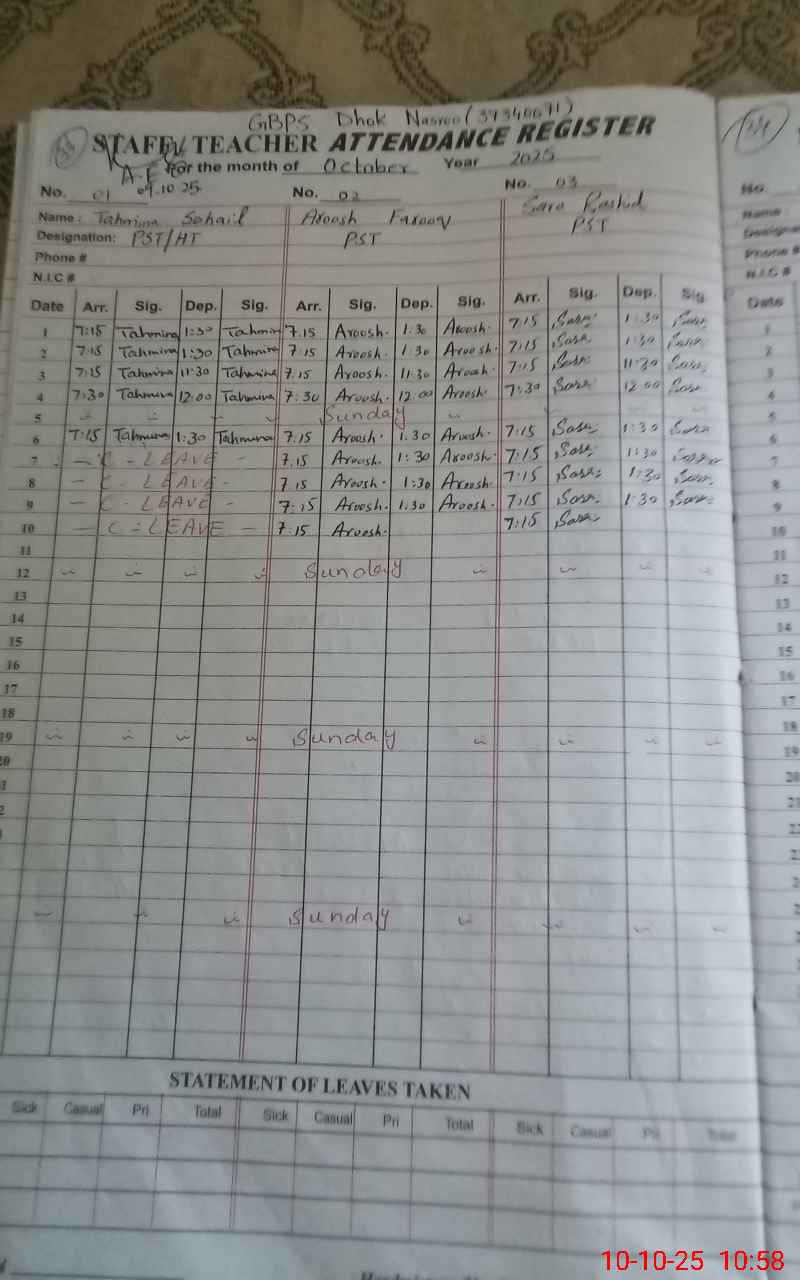 GBPS Dhok Nasroo (37340671)
STAFF / TEACHER ATTENDANCE REGISTER
A-E For the month of October Year 2025
09.10.25
No. 01 No. 02 No. 03
Name: Tahmina Sohail Aroosh Farooq Sara Rashid
Designation: PST/HT PST PST
Phone #
N.I.C #
Date Arr. Sig. Dep. Sig. Arr. Sig. Dep. Sig. Arr. Sig. Dep. Sig
1 7:15 Tahmina 1:30 Tahmina 7.15 Aroosh. 1:30 Aroosh. 7:15 Sara 1:30 Sara
2 7:15 Tahmina 1:30 Tahmina 7:15 Aroosh. 1:30 Aroosh. 7:15 Sara 1:30 Sara
3 7:15 Tahmina 11:30 Tahmina 7.15 Aroosh. 11:30 Aroosh. 7:15 Sara 11:30 Sara
4 7:30 Tahmina 12:00 Tahmina 7:30 Aroosh. 12:00 Aroosh. 7:30 Sara 12:00 Sara
5 Sunday
6 7:15 Tahmina 1:30 Tahmina 7.15 Aroosh. 1.30 Aroosh. 7:15 Sara 1:30 Sara
7 - C - LEAVE - 7.15 Aroosh. 1:30 Aroosh. 7:15 Sara 1:30 Sara
8 - C - LEAVE - 7.15 Aroosh. 1:30 Aroosh. 7:15 Sara 1:30 Sara
9 - C - LEAVE - 7:15 Aroosh. 1.30 Aroosh. 7:15 Sara 1:30 Sara
10 - C - LEAVE - 7:15 Aroosh. 7:15 Sara
11
12 Sunday
13
14
15
16
17
18
19 Sunday
Sunday
STATEMENT OF LEAVES TAKEN
Sick Casual Pri Total Sick Casual Pri Total Sick Casual Pri Total
10-10-25 10:58